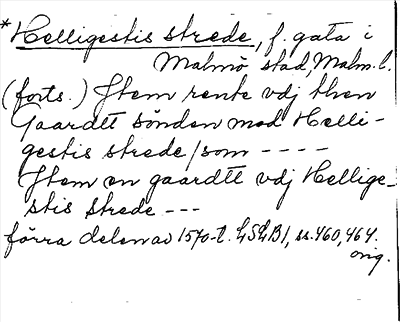 *Helligestis strede, f. gata i
Malmö stad, Malm. l.
(forts.) Jtem rente vdj then
Gaardtt sönden mod Helli-
gestis strede/som ----
Jtem en gaardtt vdj Hellige-
stis strede ---
förra delen av 1570-t. LSLB1, ss. 460, 464.
orig.